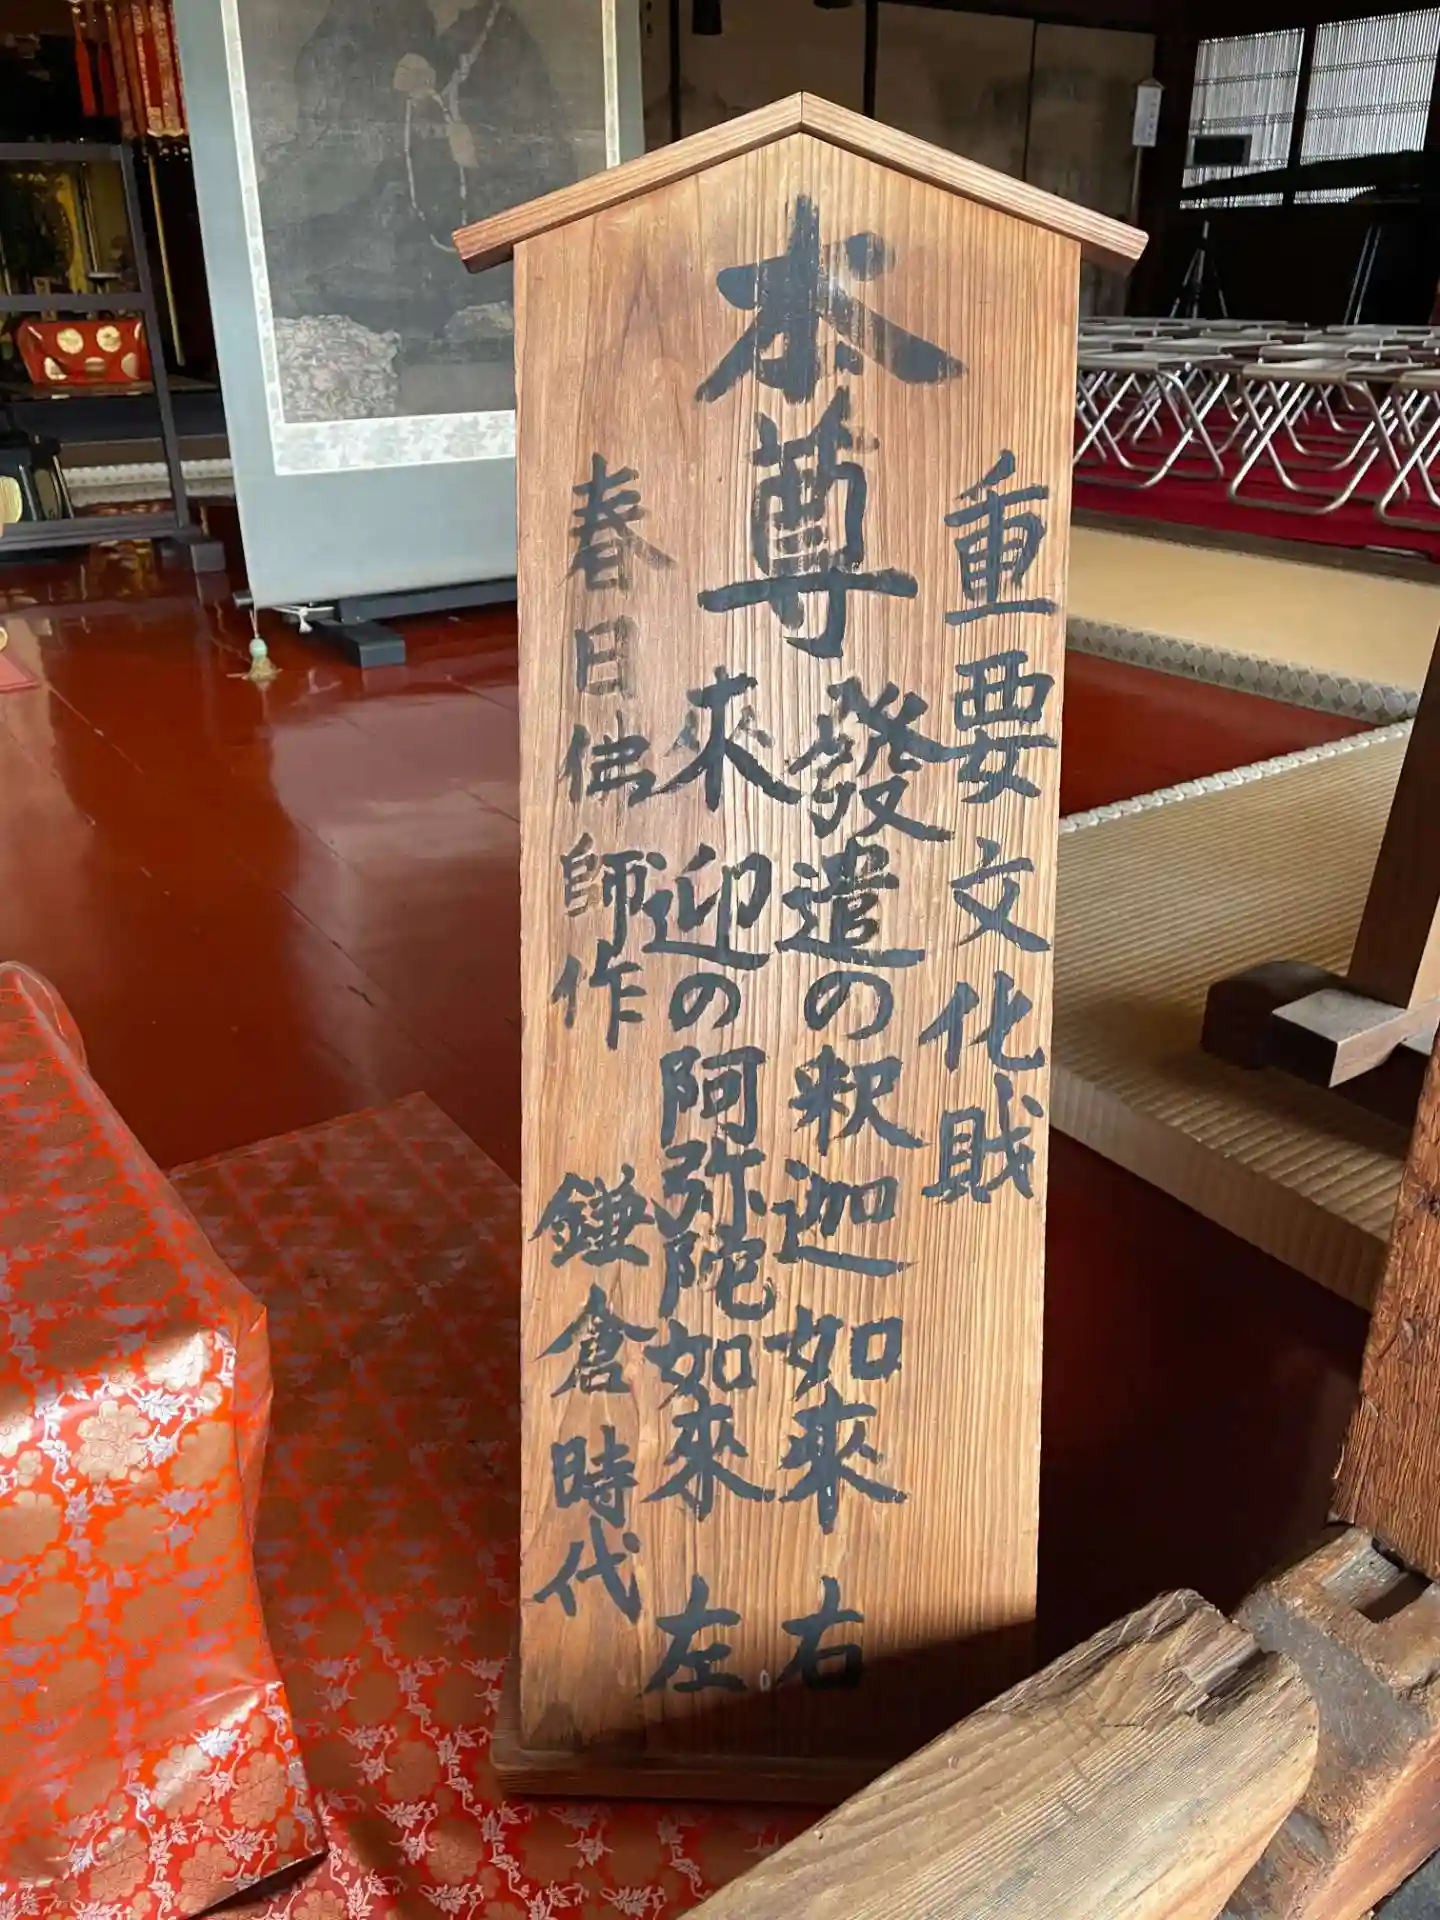 重要文化財
本尊
發遣の釈迦如來 右
來迎の阿弥陀如來 左
春日佛師作 鎌倉時代